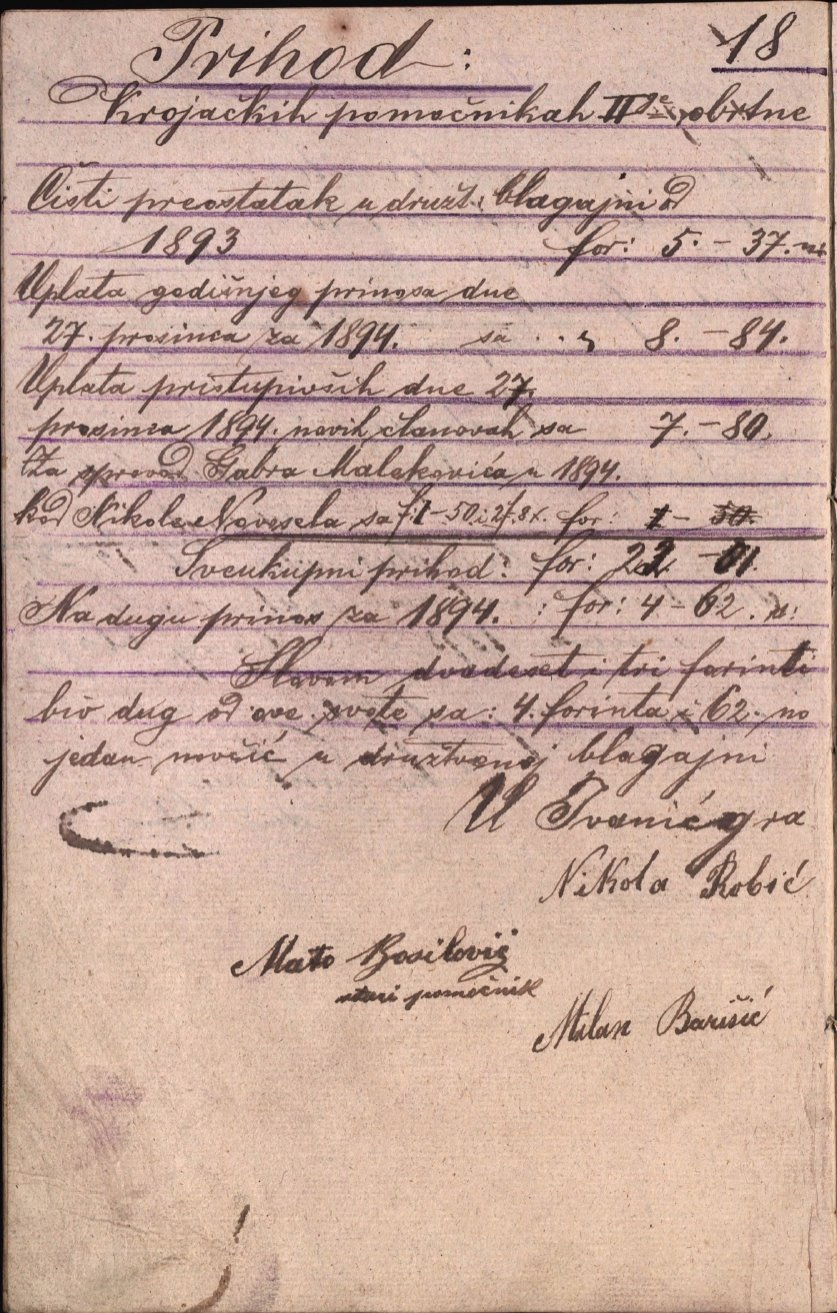 Prihod:
18
Krojačkih pomoćnikah II obrtne
Čisti preostatak u družt. blagajni od
1893 for: 5. – 37.
Uplata godišnjeg prinosa dne
27. prosinca za 1894. sa . . „ 8. – 84.
Uplata pristupivših dne 27.
prosinca 1894. novih članovah sa 7. – 80.
Za sprovod Gabra Malekovića u 1894.
kod Nikole Navesela sa for: – 50.
Sveukupni prihod: for: – 01.
Na dugu prinos za 1894. : for: 4 – 62.
Slovom dvadeset i tri forinti
biv dug od ove svote sa: 4. forinta i 62. no
jedan novčić u družtvenoj blagajni
U Ivanićgra
Nikola Robić
Mato Bosilović
stari pomoćnik
Milan Barišić